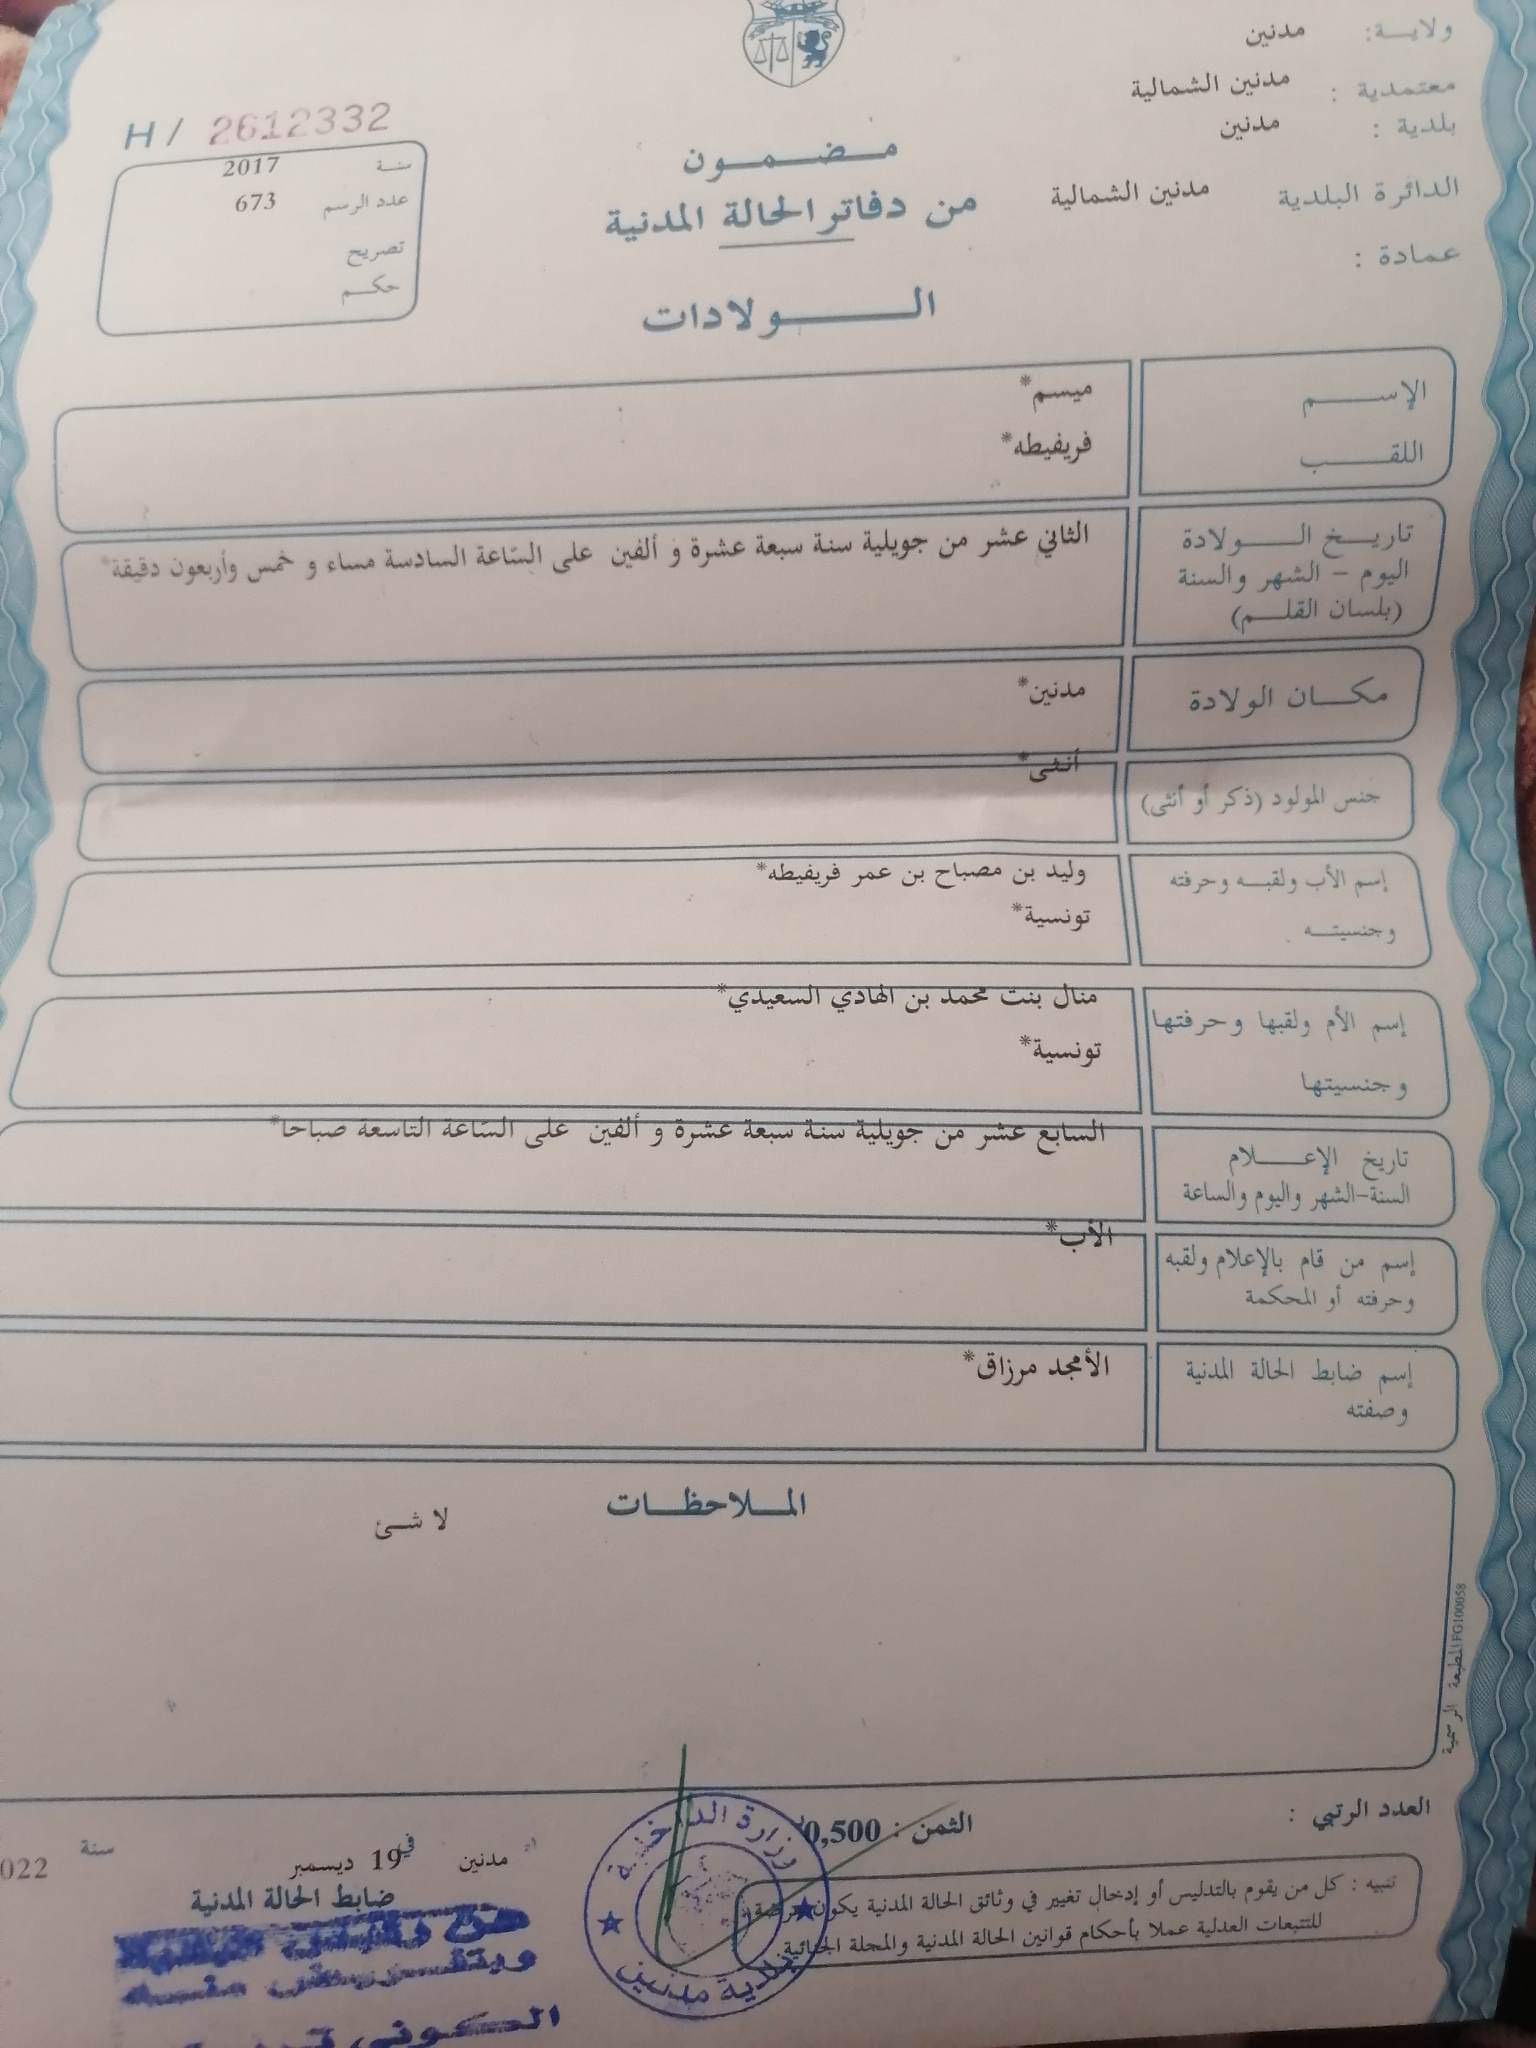 ولاية: مدنين
معتمدية : مدنين الشمالية
بلدية : مدنين
الدائرة البلدية مدنين الشمالية
عمادة :
مضمون
من دفاتر الحالة المدنية
الولادات
H / 2612332
سنة 2017
عدد الرسم 673
تصريح
حكم
الإسم ميسم*
اللقب فريفيطه*
تاريخ الولادة الثاني عشر من جويلية سنة سبعة عشرة و ألفين على السّاعة السادسة مساء و خمس وأربعون دقيقة*
اليوم - الشهر والسنة
(بلسان القلم)
مكان الولادة مدنين*
جنس المولود (ذكر أو أنثى) أنثى*
إسم الأب ولقبه وحرفته وليد بن مصباح بن عمر فريفيطه*
وجنسيته تونسية*
إسم الأم ولقبها وحرفتها منال بنت محمد بن الهادي السعيدي*
وجنسيتها تونسية*
تاريخ الإعلام السابع عشر من جويلية سنة سبعة عشرة و ألفين على السّاعة التاسعة صباحا*
السنة-الشهر واليوم والساعة
إسم من قام بالإعلام ولقبه الأب*
وحرفته أو المحكمة
إسم ضابط الحالة المدنية الأمجد مرزاق*
وصفته
الملاحظات
لا شئ
المطبعة الرسمية FG100058
العدد الرتبي :
الثمن : 0,500
تنبيه : كل من يقوم بالتدليس أو إدخال تغيير في وثائق الحالة المدنية يكون عرضة
للتتبعات العدلية عملا بأحكام قوانين الحالة المدنية والمجلة الجنائية.
وزارة الداخلية
بلدية مدنين
مدنين في 19 ديسمبر سنة 022
ضابط الحالة المدنية
الكوني